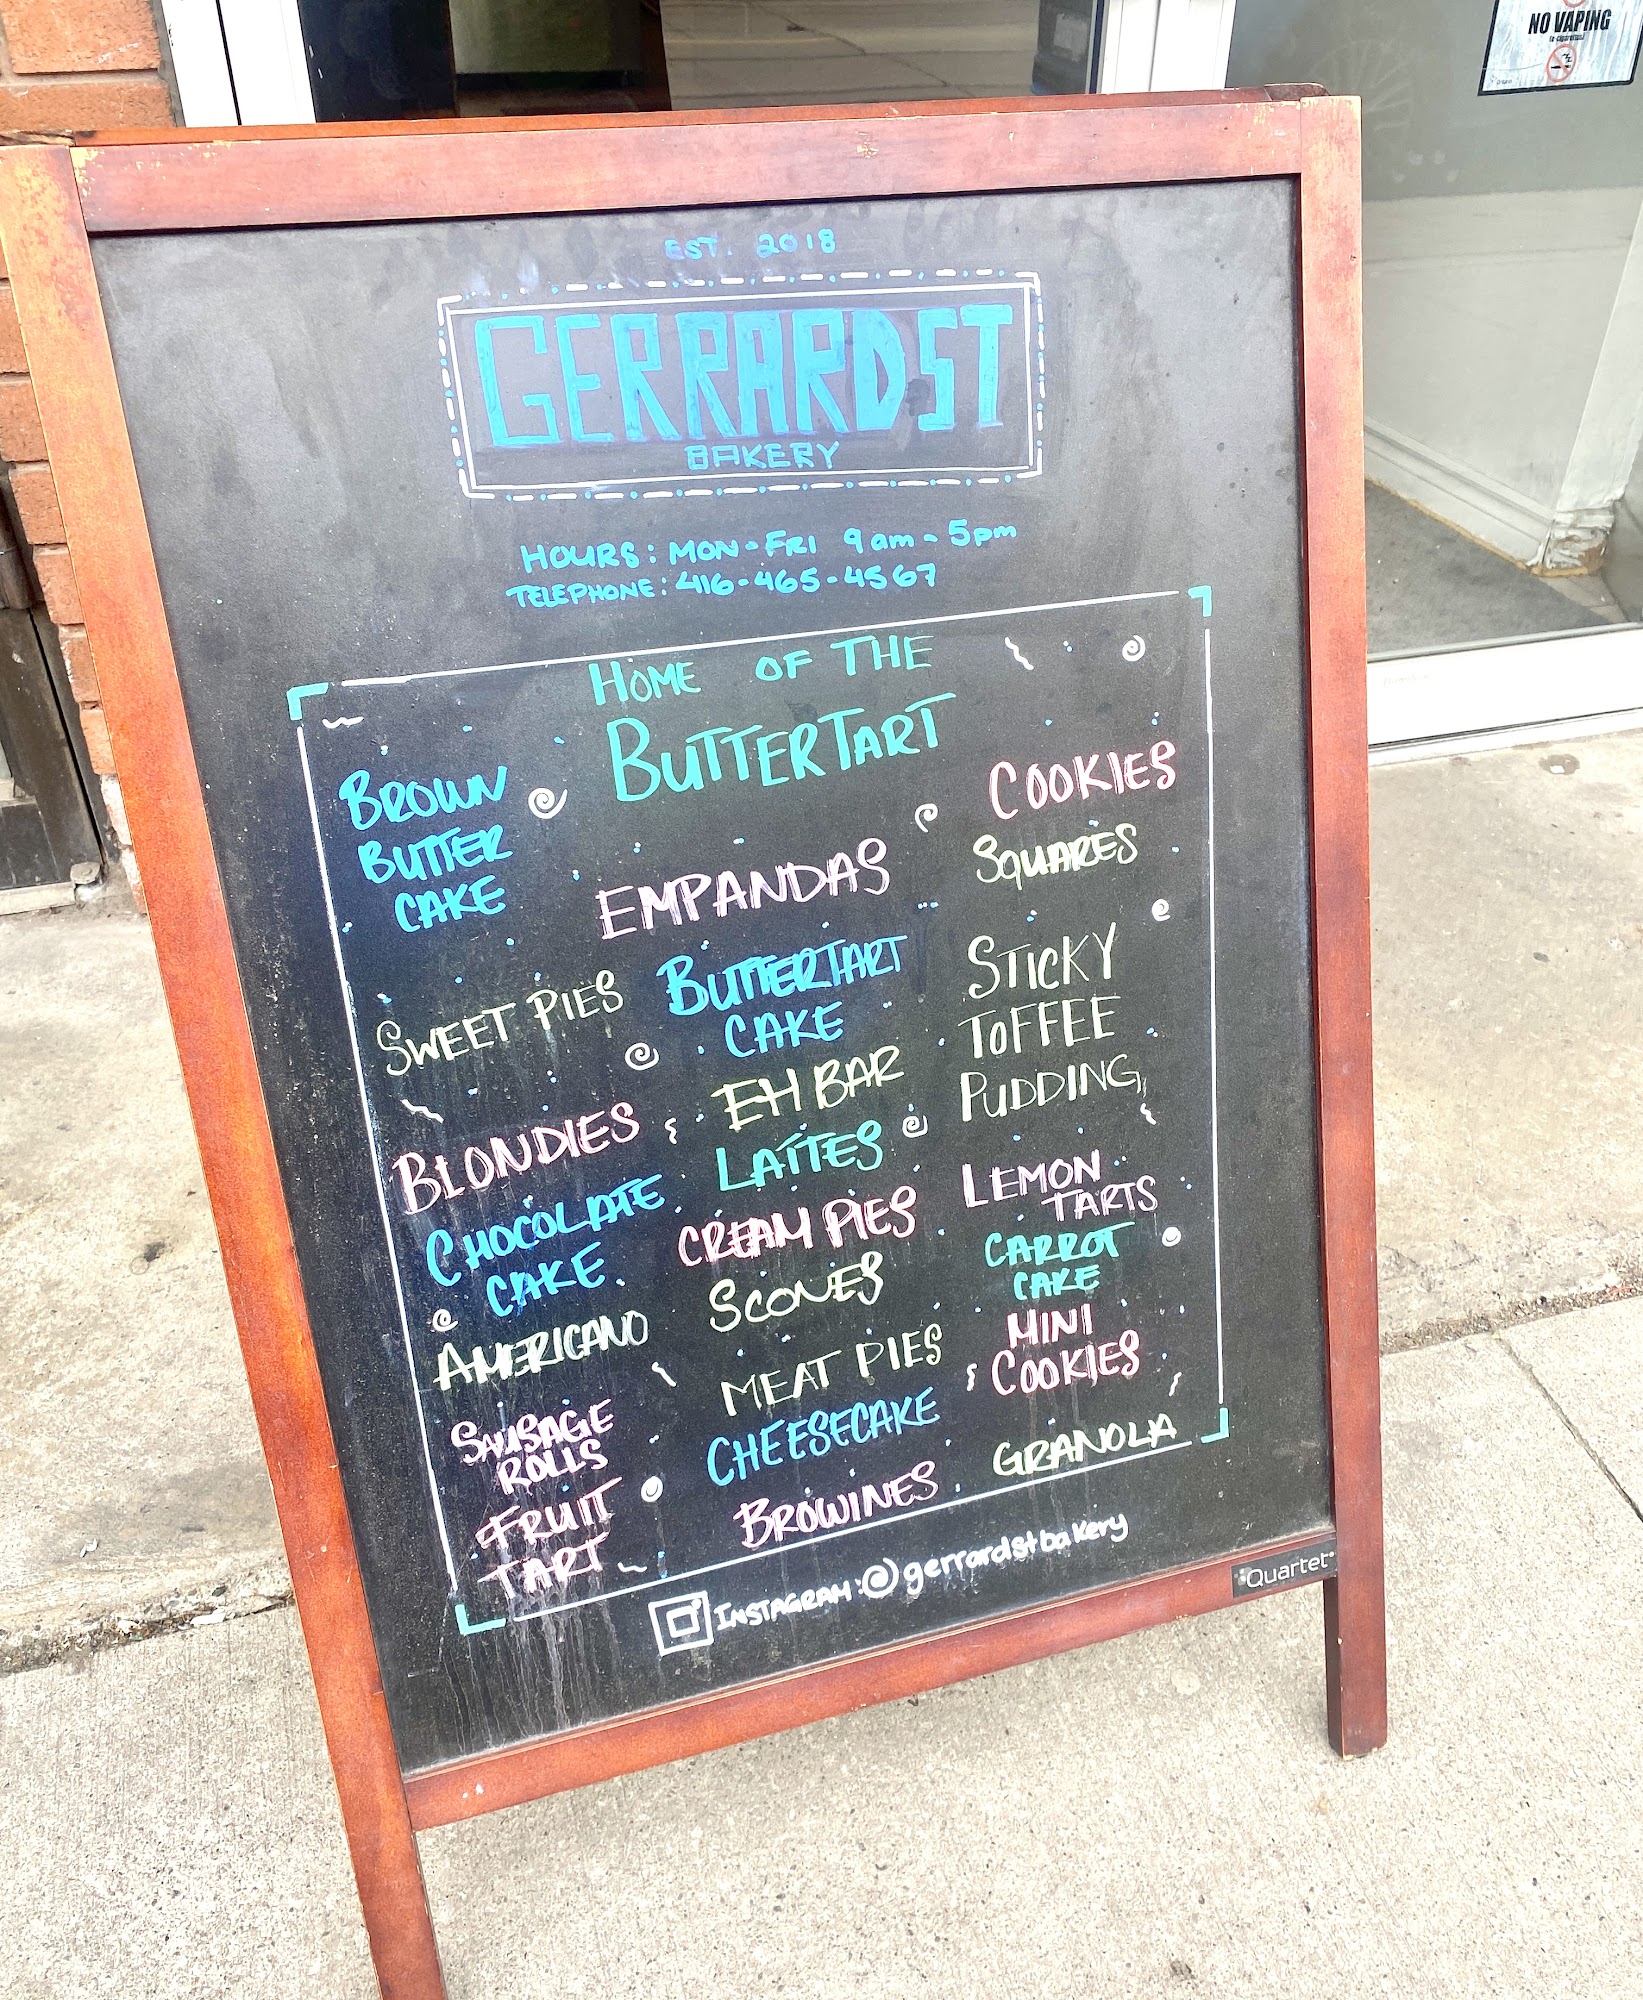 NO VAPING
EST. 2018
GERRARD ST
BAKERY
HOURS: MON-FRI 9am-5pm
TELEPHONE: 416-465-4567
HOME OF THE
BUTTERTART
BROWN
BUTTER
CAKE
SWEET PIES
BLONDIES
CHOCOLATE
CAKE
AMERICANO
SAUSAGE
ROLLS
FRUIT
TART
EMPANDAS
BUTTERTART
CAKE
EH BAR
LATTES
CREAM PIES
SCONES
MEAT PIES
CHEESECAKE
BROWINES
COOKIES
SQUARES
STICKY
TOFFEE
PUDDING
LEMON
TARTS
CARROT
CAKE
MINI
COOKIES
GRANOLA
INSTAGRAM: @gerrardstbakery
Quartet